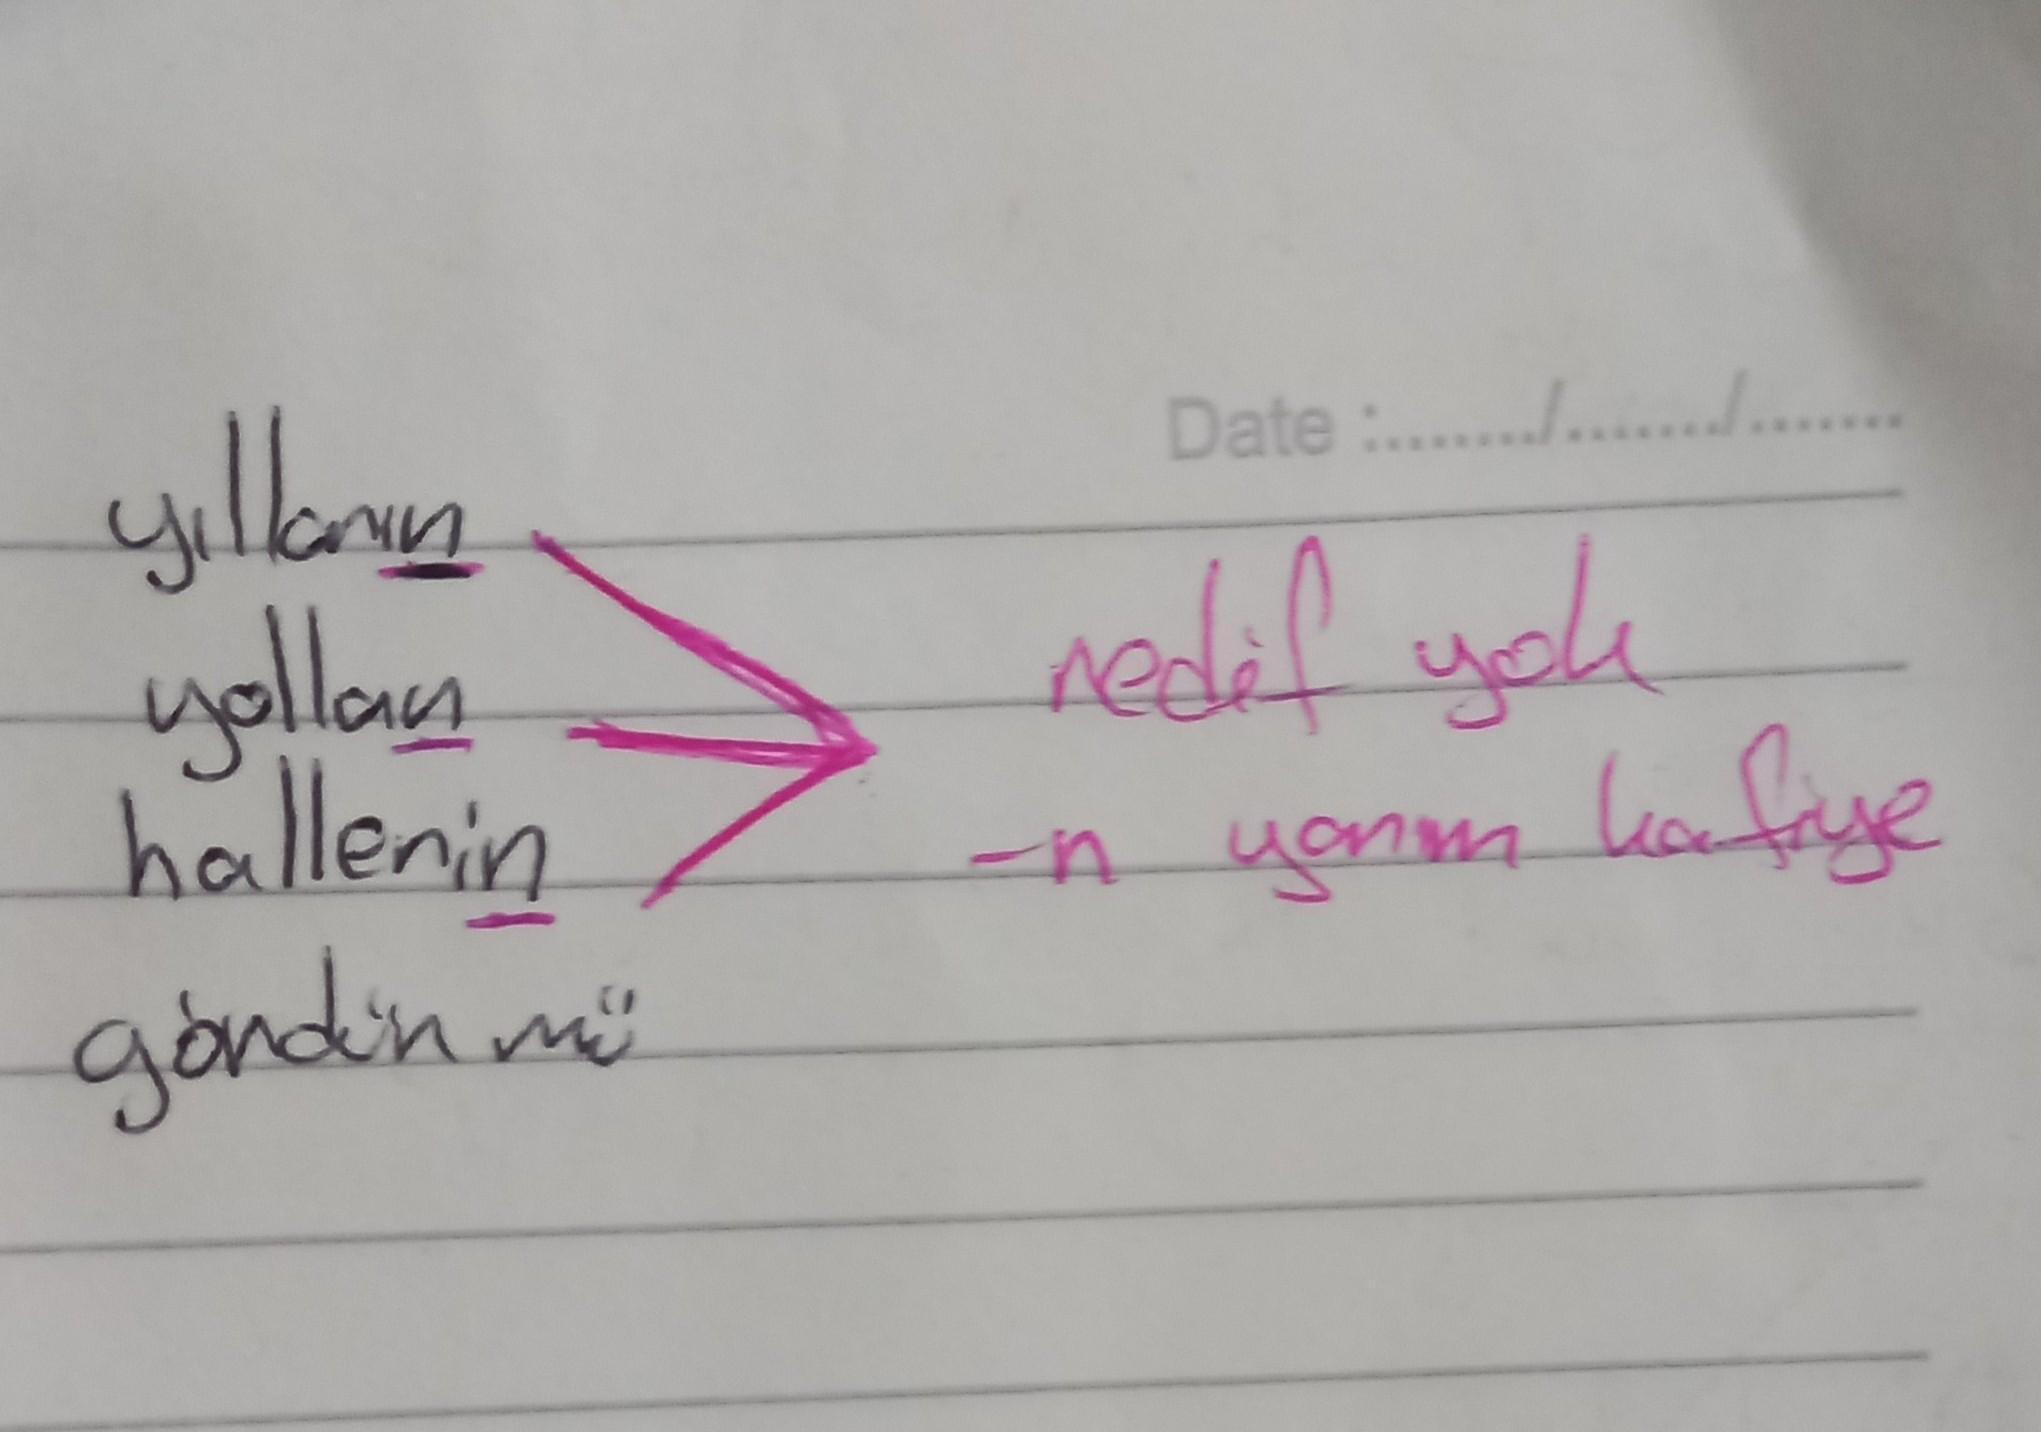 Date :......../......../........
yılların
yollan
hallerin
gördün mü
redif yok
-n yarım kafiye